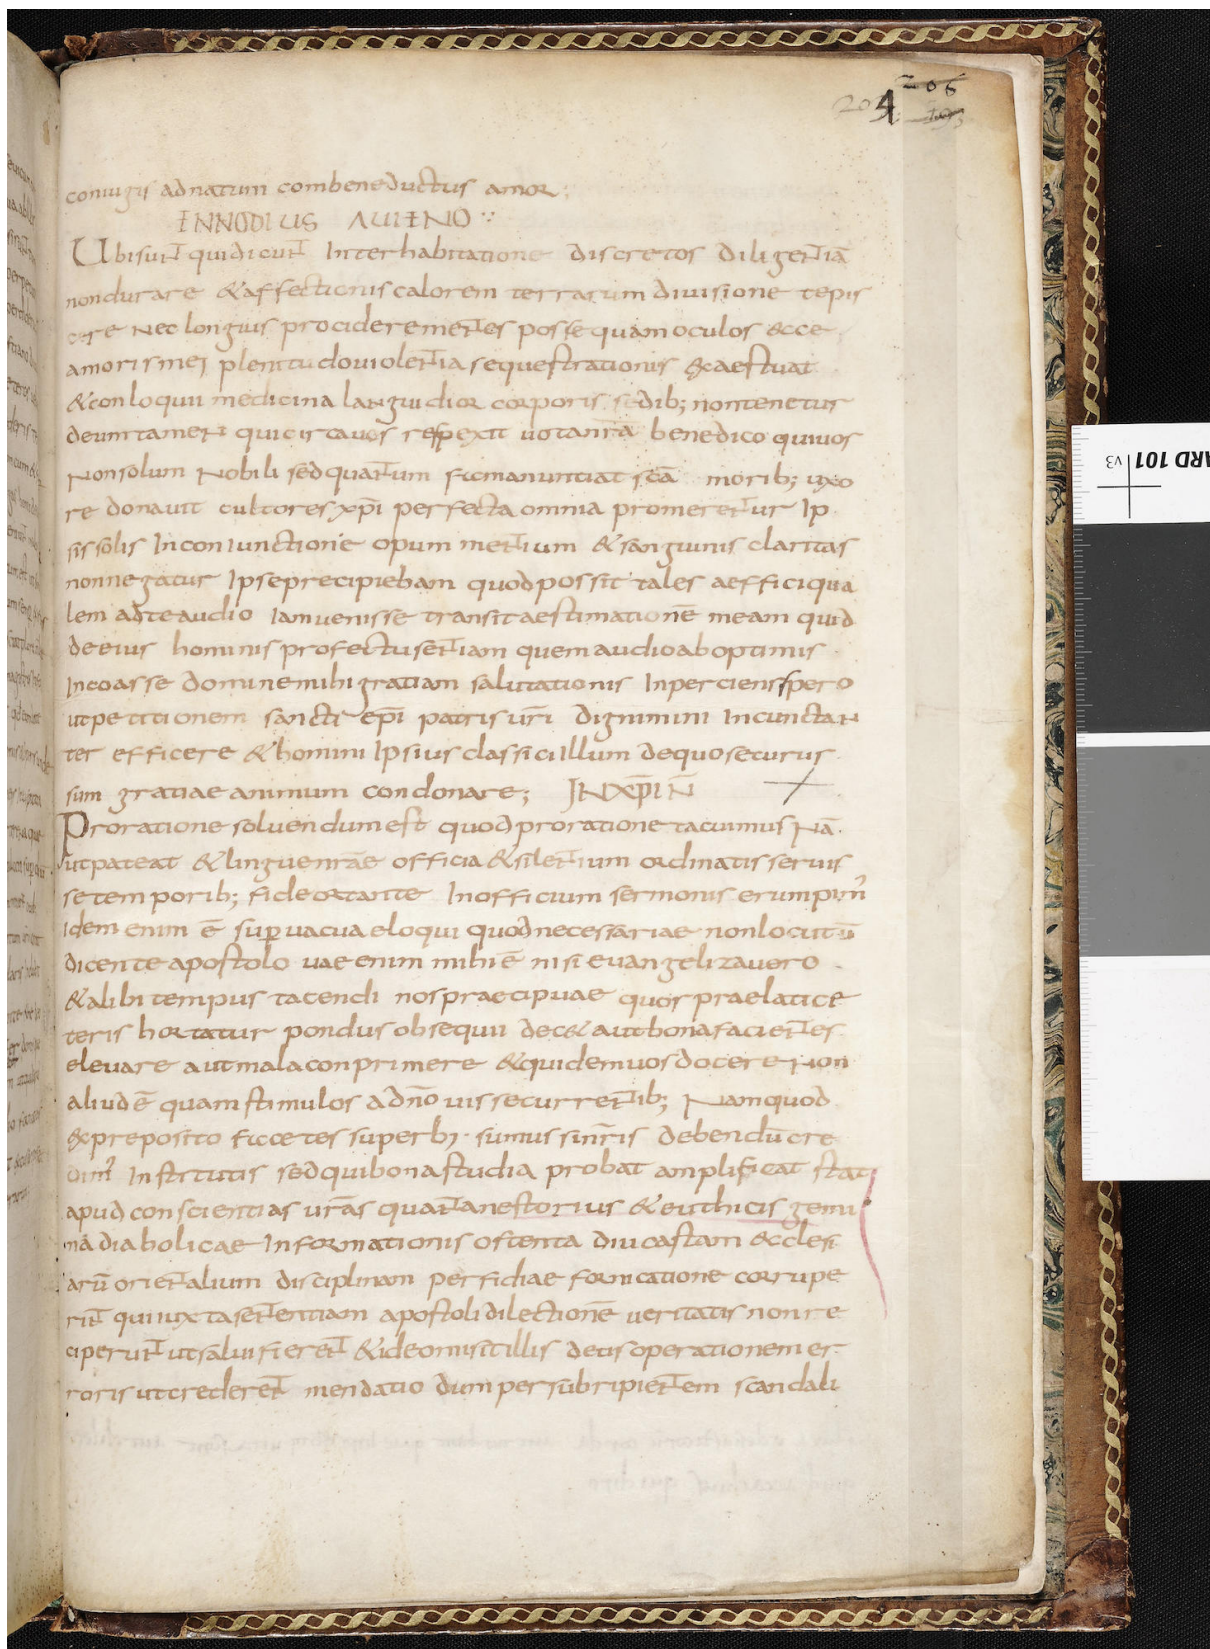 204 206
193
coniugis adnatum combeneductus amor;
ENNODIUS AUIENO
Ubisunt quidicunt Interhabitatione discretos diligentiā
nondurare &affectionis calorem terrarum divisione tepis
cere Nec longius prociderementes posse quam oculos ecce
amorismei plenitudo uiolentia sequestrationis exaestuat
&conloquii medicina languidior corporis sedib; nontenetur
deumtamen quicircauos respexit uotanr̄a benedico quiuos
Nonsolum Nobili sedquantum ficmanuntiat scā morib; uxo
re donauit cultores xp̄i perfecta omnia promerentur Ip
sissolis Inconiunctione opum mentium &sanguinis claritas
nonnegatur Ipseprecipiebam quodpossit tales aefficiqua
lem adteaudio Iamuenisse transitaestimationē meam quid
deeius hominis profectusentiam quemaudioaboptimis
Incoasse dominemihi gratiam salutationis Inperciensspero
utpetitionem sancti ep̄i patris ur̄i dignimini Incunctan
ter efficere &homini Ipsius classici Illum dequosecurus
sum gratiae animum condonare; INXP̄IN̄
Proratione soluendumest quodproratione tacuimus Nā
utpateat &linguenrāe officia &silentium ordinatis seruis
setemporib; fideortante Inofficium sermonis erumpim'
Idem enim ē sup̱uacua eloqui quodnecessariae nonlocutū
dicente apostolo uae enim mihi ē nisi euangelizauero
&alibi tempus tacendi nos praecipuae quos praelatice
teris hortatur pondus obsequii dec& autbonafacientes
eleuare autmalaconprimere &quidemuosdocere Non
aliudē quamstimulos adn̄o uissecurrentib; Namquod
expreposito ficcetessuperb; sumus sinr̄is debendū cre
dim' Institutis sedquibonastudia probat amplificat stat
apud conscientias urās quantanestorius &euthicis gemi
nā diabolicae Informationis ostenta diu castam ecclesi
arū orientalium disciplinam perfidiae fornicatione corrupe
rint quiiuxtasententiam apostoli dilectionē ueritatis nonre
ciperunt utsalui fierent &ideomisitillis deusoperationemer
roris utcrederent mendatio dumpersubripientem scandali